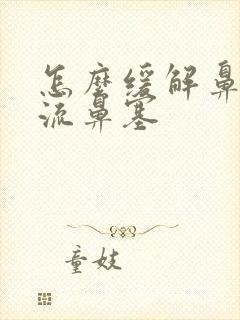 怎麼緩解鼻
流鼻塞
童妓